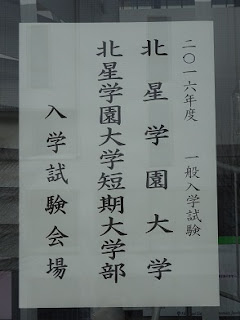 二〇一六年度　一般入学試験
北星学園大学
北星学園大学短期大学部
入学試験会場